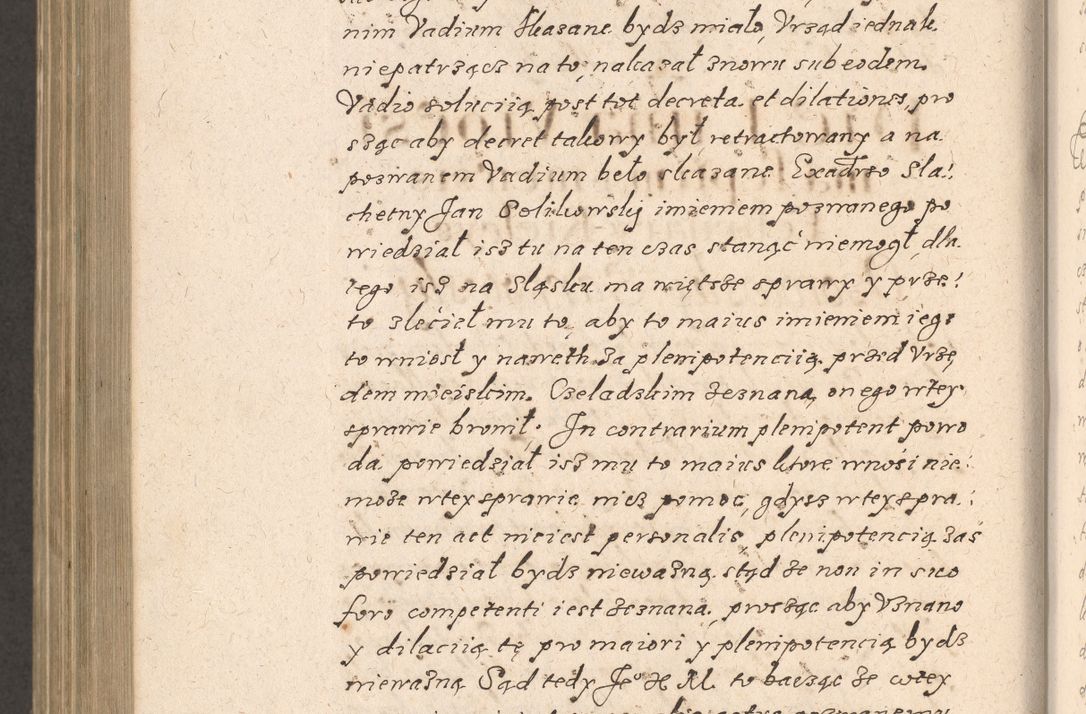 nim Vadium skasane bydz miało, Vrząd iednak
niepatrzącz na to, nakazał znowu sub eodem
Vadio solucią post tot decreta et dilationes, pro
sząc aby decret takowy był retractowany a na
poswanem Vadium beło skazane Sla:
chetny Jan Polikowsky imieniem poswanego po
wiedział isz tu na ten czas stanąć niemogł, dla
tego isz na Sląsku ma więtsze sprawy y prze:
to zlećieł mu to, aby to maius imieniem iego
to wniosł y naweth za plenipotencyią przed Vrzę
dem mieiskim Czeladzkim zeznaną, onego wtey
sprawie bronił. In contrarium plenipotent powo
da powiedział isz mu to maius ktore wnośi nie
może wtey sprawie niesz pomoc, gdysz wtey spra:
wie ten act nieiest personalis, plenipotencią zaś
powiedział bydz nieważną, stąd że non in suo
foro competenti iest zeznana, prosząc aby Vznano
y dilacią tę pro maiori y plenipotencią bydz
nieważną Sąd tedy Je° X M. to bacząc że wtey